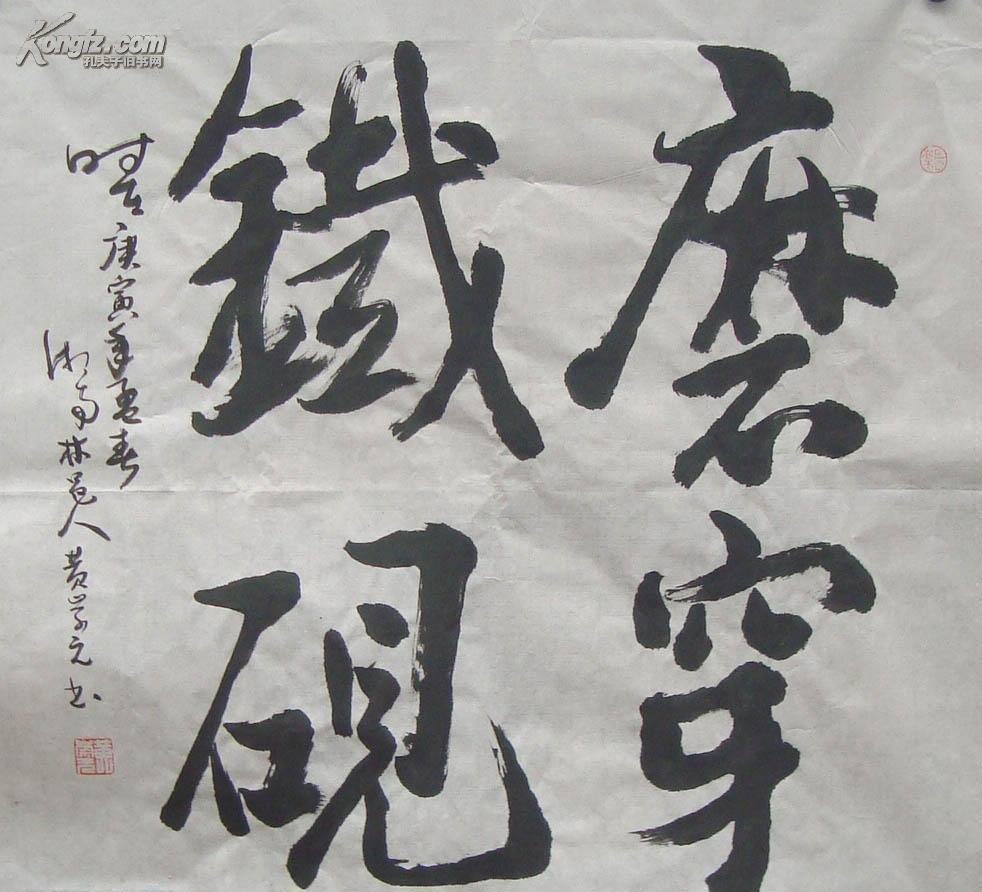 磨穿
鐵硯
時在庚寅年孟春
湘南林邑人黄学元书
Kongfz.com
孔夫子旧书网